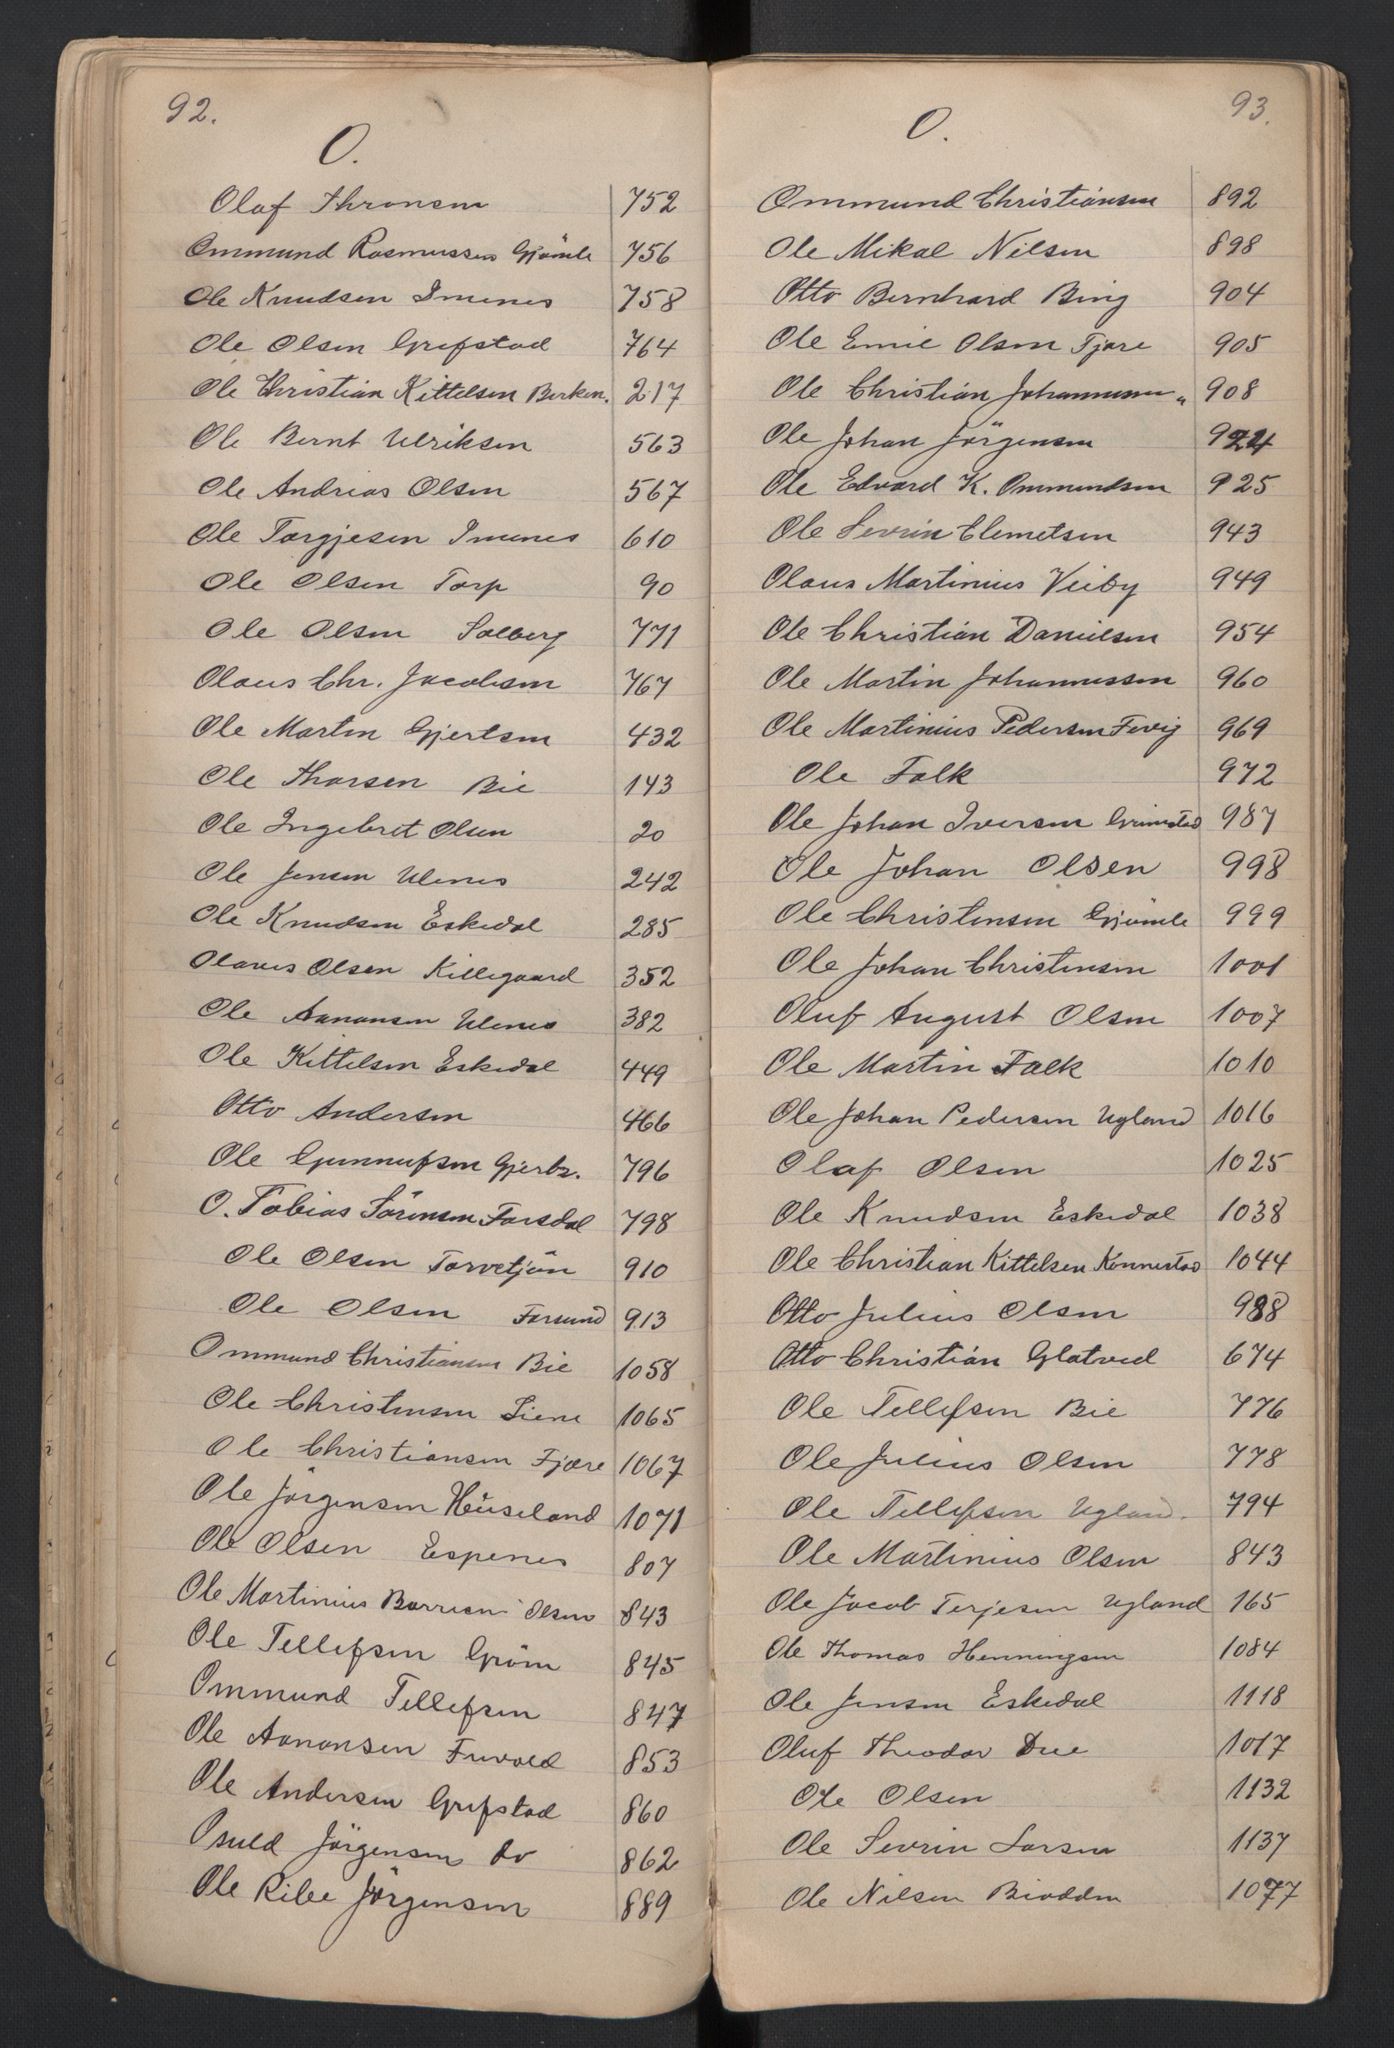 92.
O.
Olaf Thronsen 752
Ommund Rasmussen Gjömle 756
Ole Knudsen Imenes 758
Ole Olsen Grefstad 764
Ole Christian Kittelsen Berken. 217
Ole Bernt Ulriksen 563
Ole Andrias Olsen 567
Ole Torgjesen Imenes 610
Ole Olsen Torp 90
Ole Olsen Solberg 771
Olaus Chr. Jacobsen 767
Ole Martin Gjertsen 432
Ole Thorsen Bie 143
Ole Ingebret Olsen 20
Ole Jensen Ulenes 242
Ole Knudsen Eskedal 285
Olaves Olsen Killegaard 352
Ole Aanonsen Ulenes 382
Ole Kittelsen Eskedal 449
Otto Andersen 466
Ole Gunnufsen Gjerbr. 796
O. Tobias Sörensen Forsdal 798
Ole Olsen Torvetjön 910
Ole Olsen Forsund 913
Ommund Christiansen Bie 1058
Ole Christensen Liene 1065
Ole Christiansen Fjære 1067
Ole Jörgensen Heuseland 1071
Ole Olsen Espenes 807
Ole Martinius Olsen 843
Ole Tellefsen Gröm 845
Ommund Tellefsen 847
Ole Aanonsen Fuvold 853
Ole Andersen Grefstad 860
Osuld Jörgensen do 862
Ole Ribe Jörgensen 889
93.
O.
Ommund Christiansen 892
Ole Mikal Nilsen 898
Otto Bernhard Bing 904
Ole Emil Olsen Fjære 905
Ole Christian Johannesen " 908
Ole Johan Jörgensen 924
Ole Edvard K. Ommundsen 925
Ole Sevrin Clemetsen 943
Olaus Martinius Veiby 949
Ole Christian Danielsen 954
Ole Martin Johannessen 960
Ole Martinius Pedersen Fevig 969
Ole Falk 972
Ole Johan Iversen Grimstad 987
Ole Johan Olsen 998
Ole Christensen Gjömle 999
Ole Johan Christensen 1001
Oluf August Olsen 1007
Ole Martin Falk 1010
Ole Johan Pedersen Ugland 1016
Olaf Olsen 1025
Ole Knudsen Eskedal 1038
Ole Christian Kittelsen Konnestad 1044
Otto Julius Olsen 988
Otto Christian Glatved 674
Ole Tellefsen Bie 776
Ole Julius Olsen 778
Ole Tellefsen Ugland. 794
Ole Martinius Olsen 843
Ole Jacob Terjesen Ugland 165
Ole Thomas Henningsen 1084
Ole Jensen Eskedal 1118
Oluf Theodor Due 1017
Ole Olsen 1132
Ole Sevrin Larsen 1137
Ole Nilsen Brodden 1077